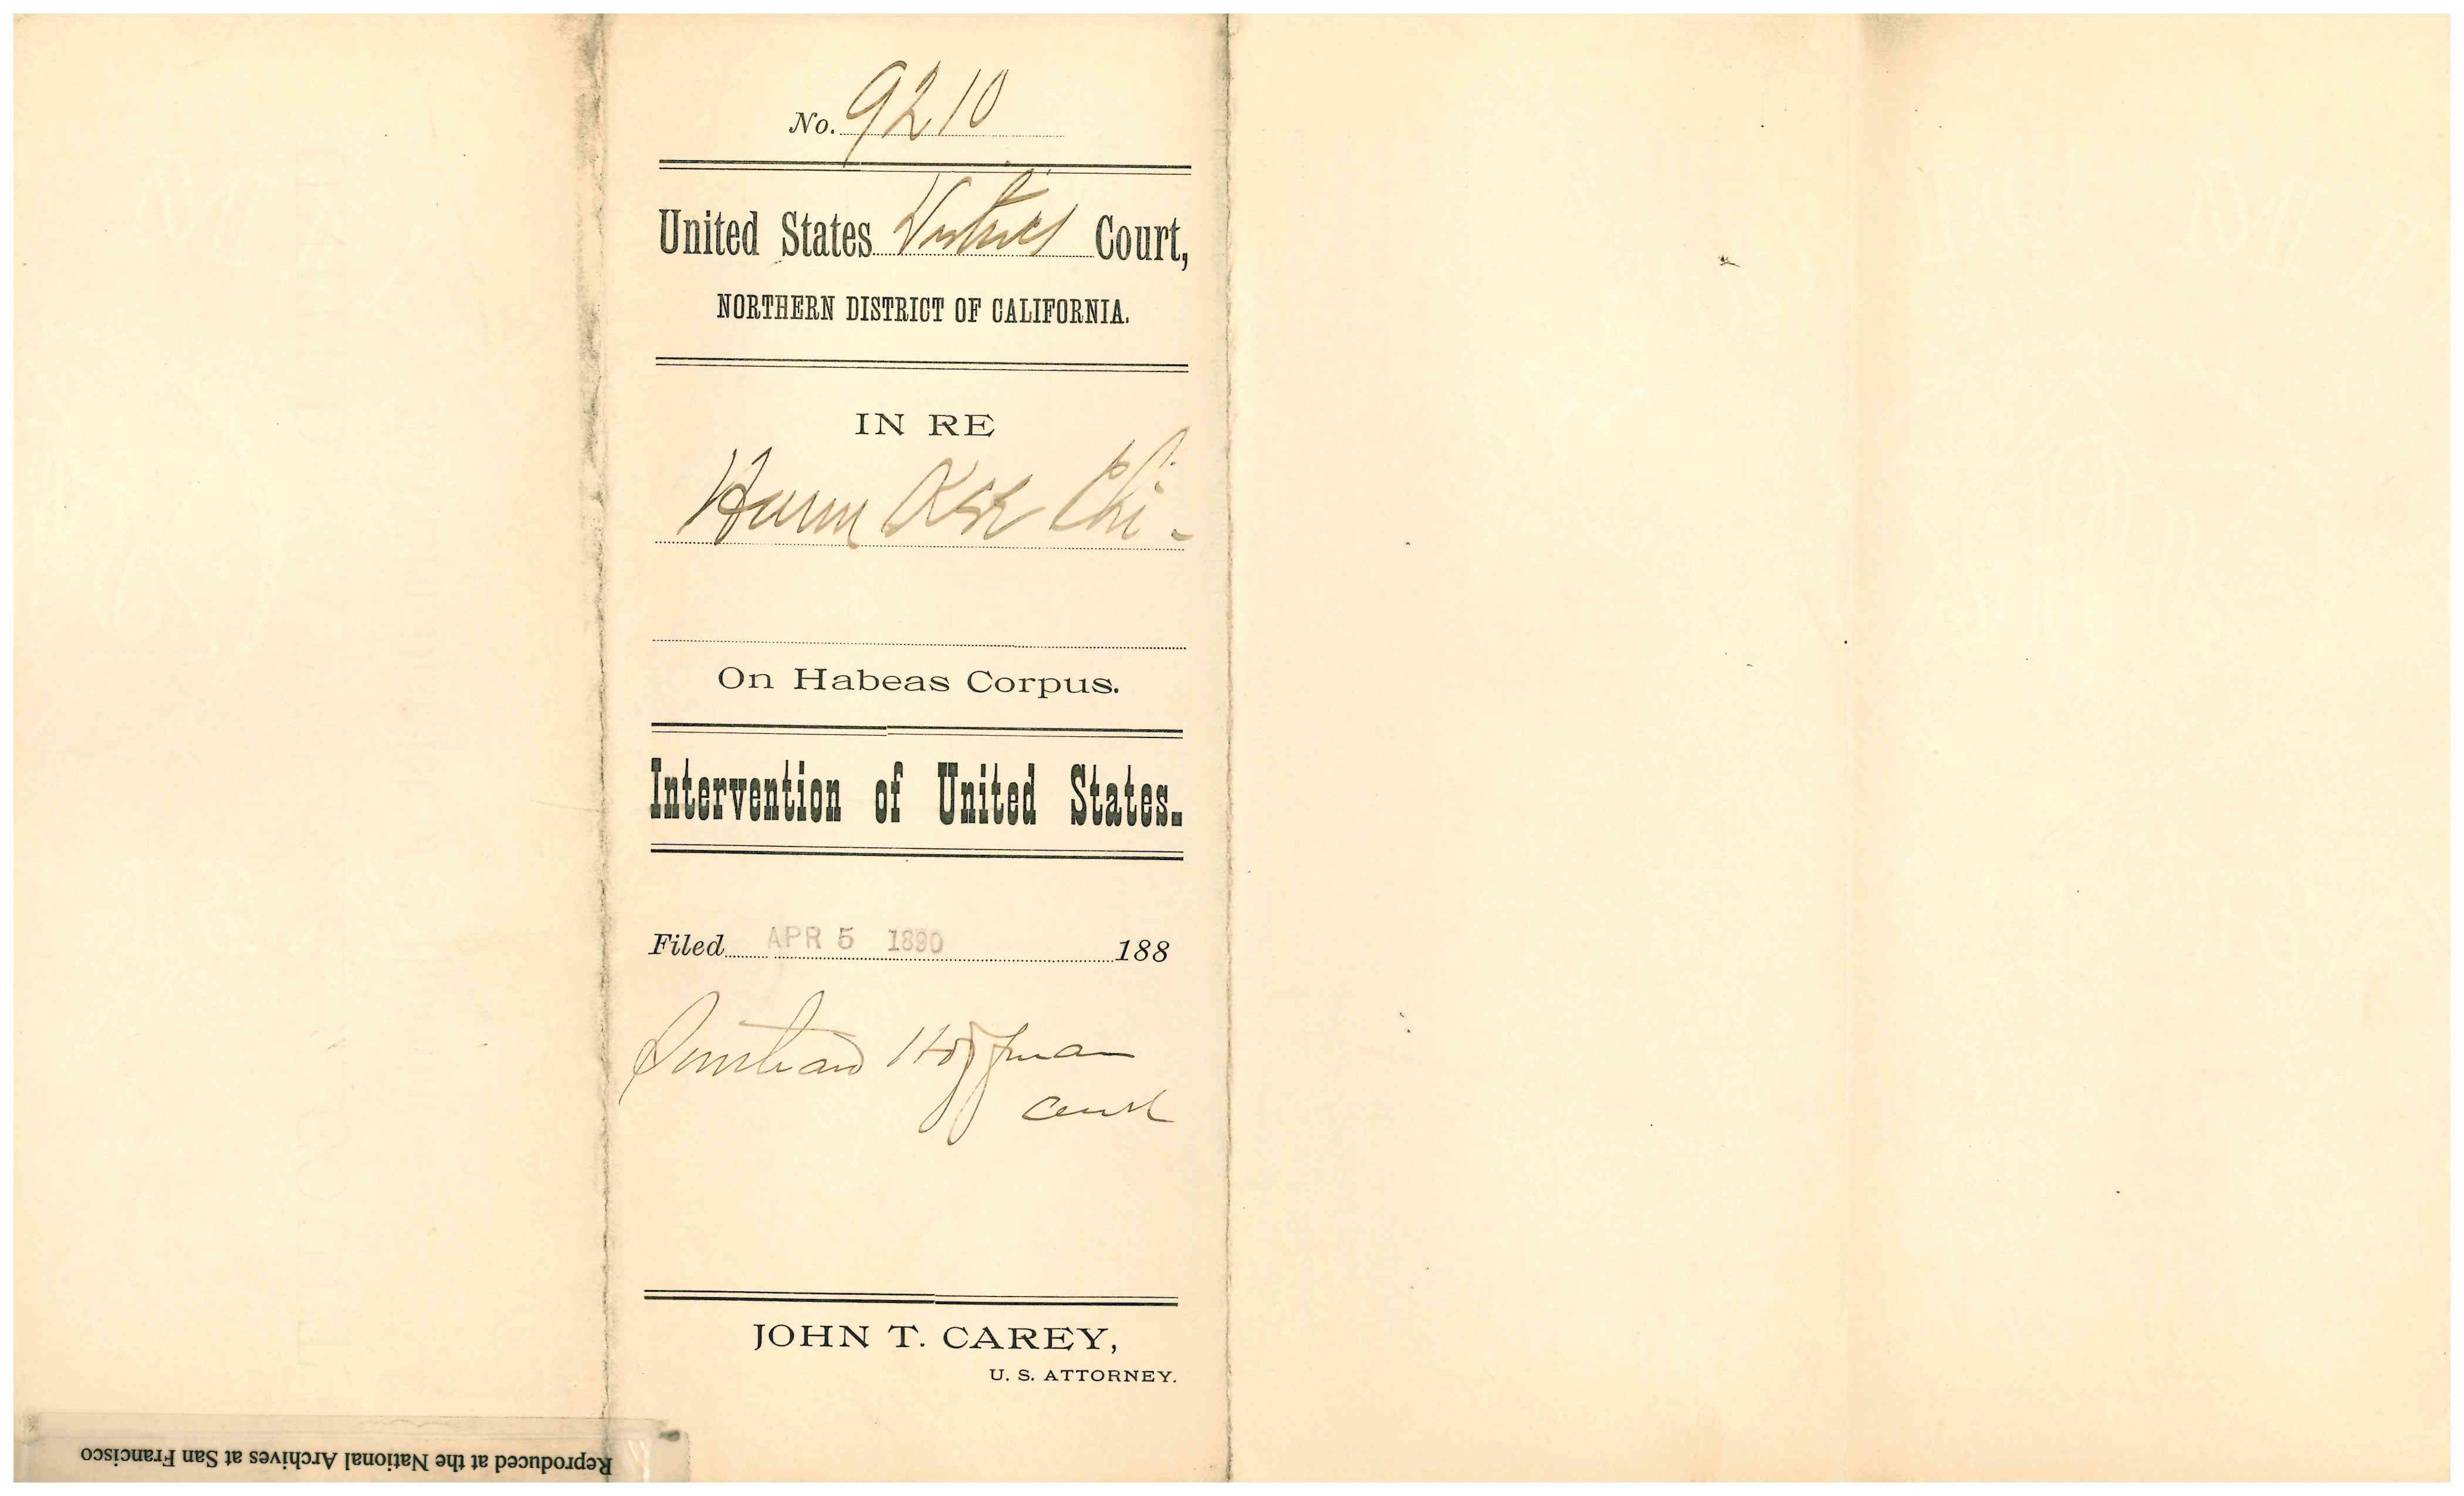 No. 9210
United States District Court,
NORTHERN DISTRICT OF CALIFORNIA.
IN RE
Chi -
On Habeas Corpus.
Intervention of United States.
Filed APR 5 1890 188
Southard Hoffman
Clerk
JOHN T. CAREY,
U. S. ATTORNEY.
Reproduced at the National Archives at San Francisco